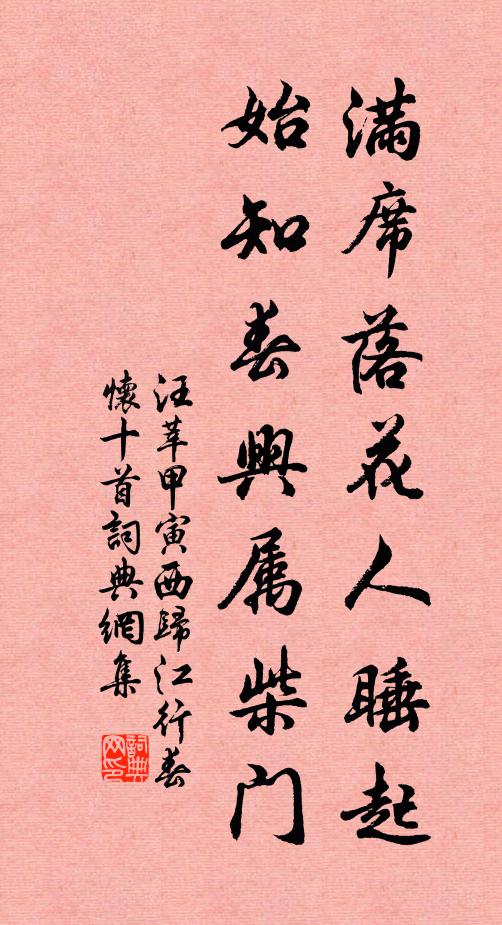 滿席落花人睡起
始知春興属柴門
汪莘甲寅西歸江行春
懷十首詞典網集
詞典
网印